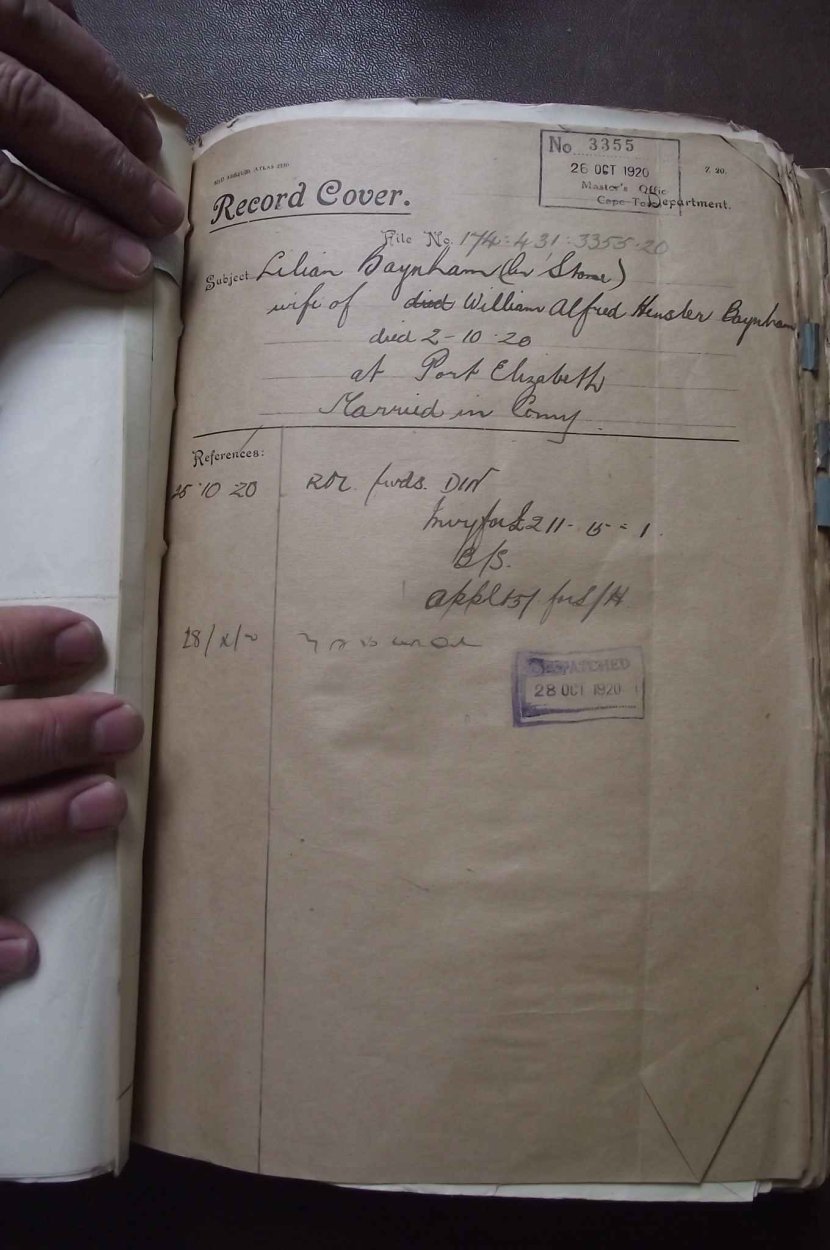 No 3355
26 OCT 1920
Master's Offic
Cape Tow
Z. 20.
Department.
Record Cover.
File No. 174:431:3355.20
Subject Lilian Baynham (bn Stone)
wife of died William Alfred Hensler Baynham
died 2-10-20
at Port Elizabeth
Married in Comy
References:
25.10.20 RM fwds. DIN
Invy for £211-15=1.
B/S.
appl 15/ for S/H
28/x/20
DESPATCHED
28 OCT 1920